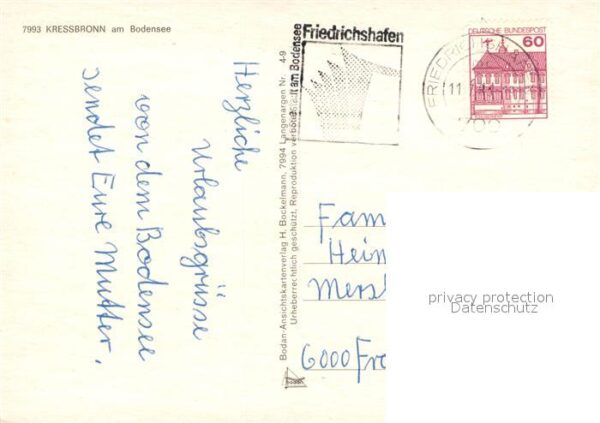 7993 KRESSBRONN am Bodensee
Herzliche
Urlaubsgrüsse
von dem Bodensee
sendet Eure Mutter.
Bodan-Ansichtskartenverlag H. Bockelmann, 7994 Langenargen Nr. 4-9
Urheberrechtlich geschützt, Reproduktion verboten
am Bodensee
Friedrichshafen
DEUTSCHE BUNDESPOST
60
FRIEDRICHSHA
11.
Fam
Heim
Mers
6000 Fra
privacy protection
Datenschutz